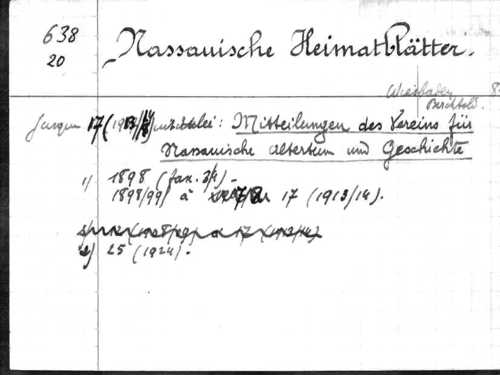 638
20
Nassauische Heimatblätter.
Wiesbaden
Bechtold. 8
Jusqu'à 17 (1913/14) : Mitteilungen des Vereins für
Nassauische Altertum und Geschichte
1) 1898 (fasc. 3/4) -
1898/99) à 17 (1913/14).
2) 25 (1924).